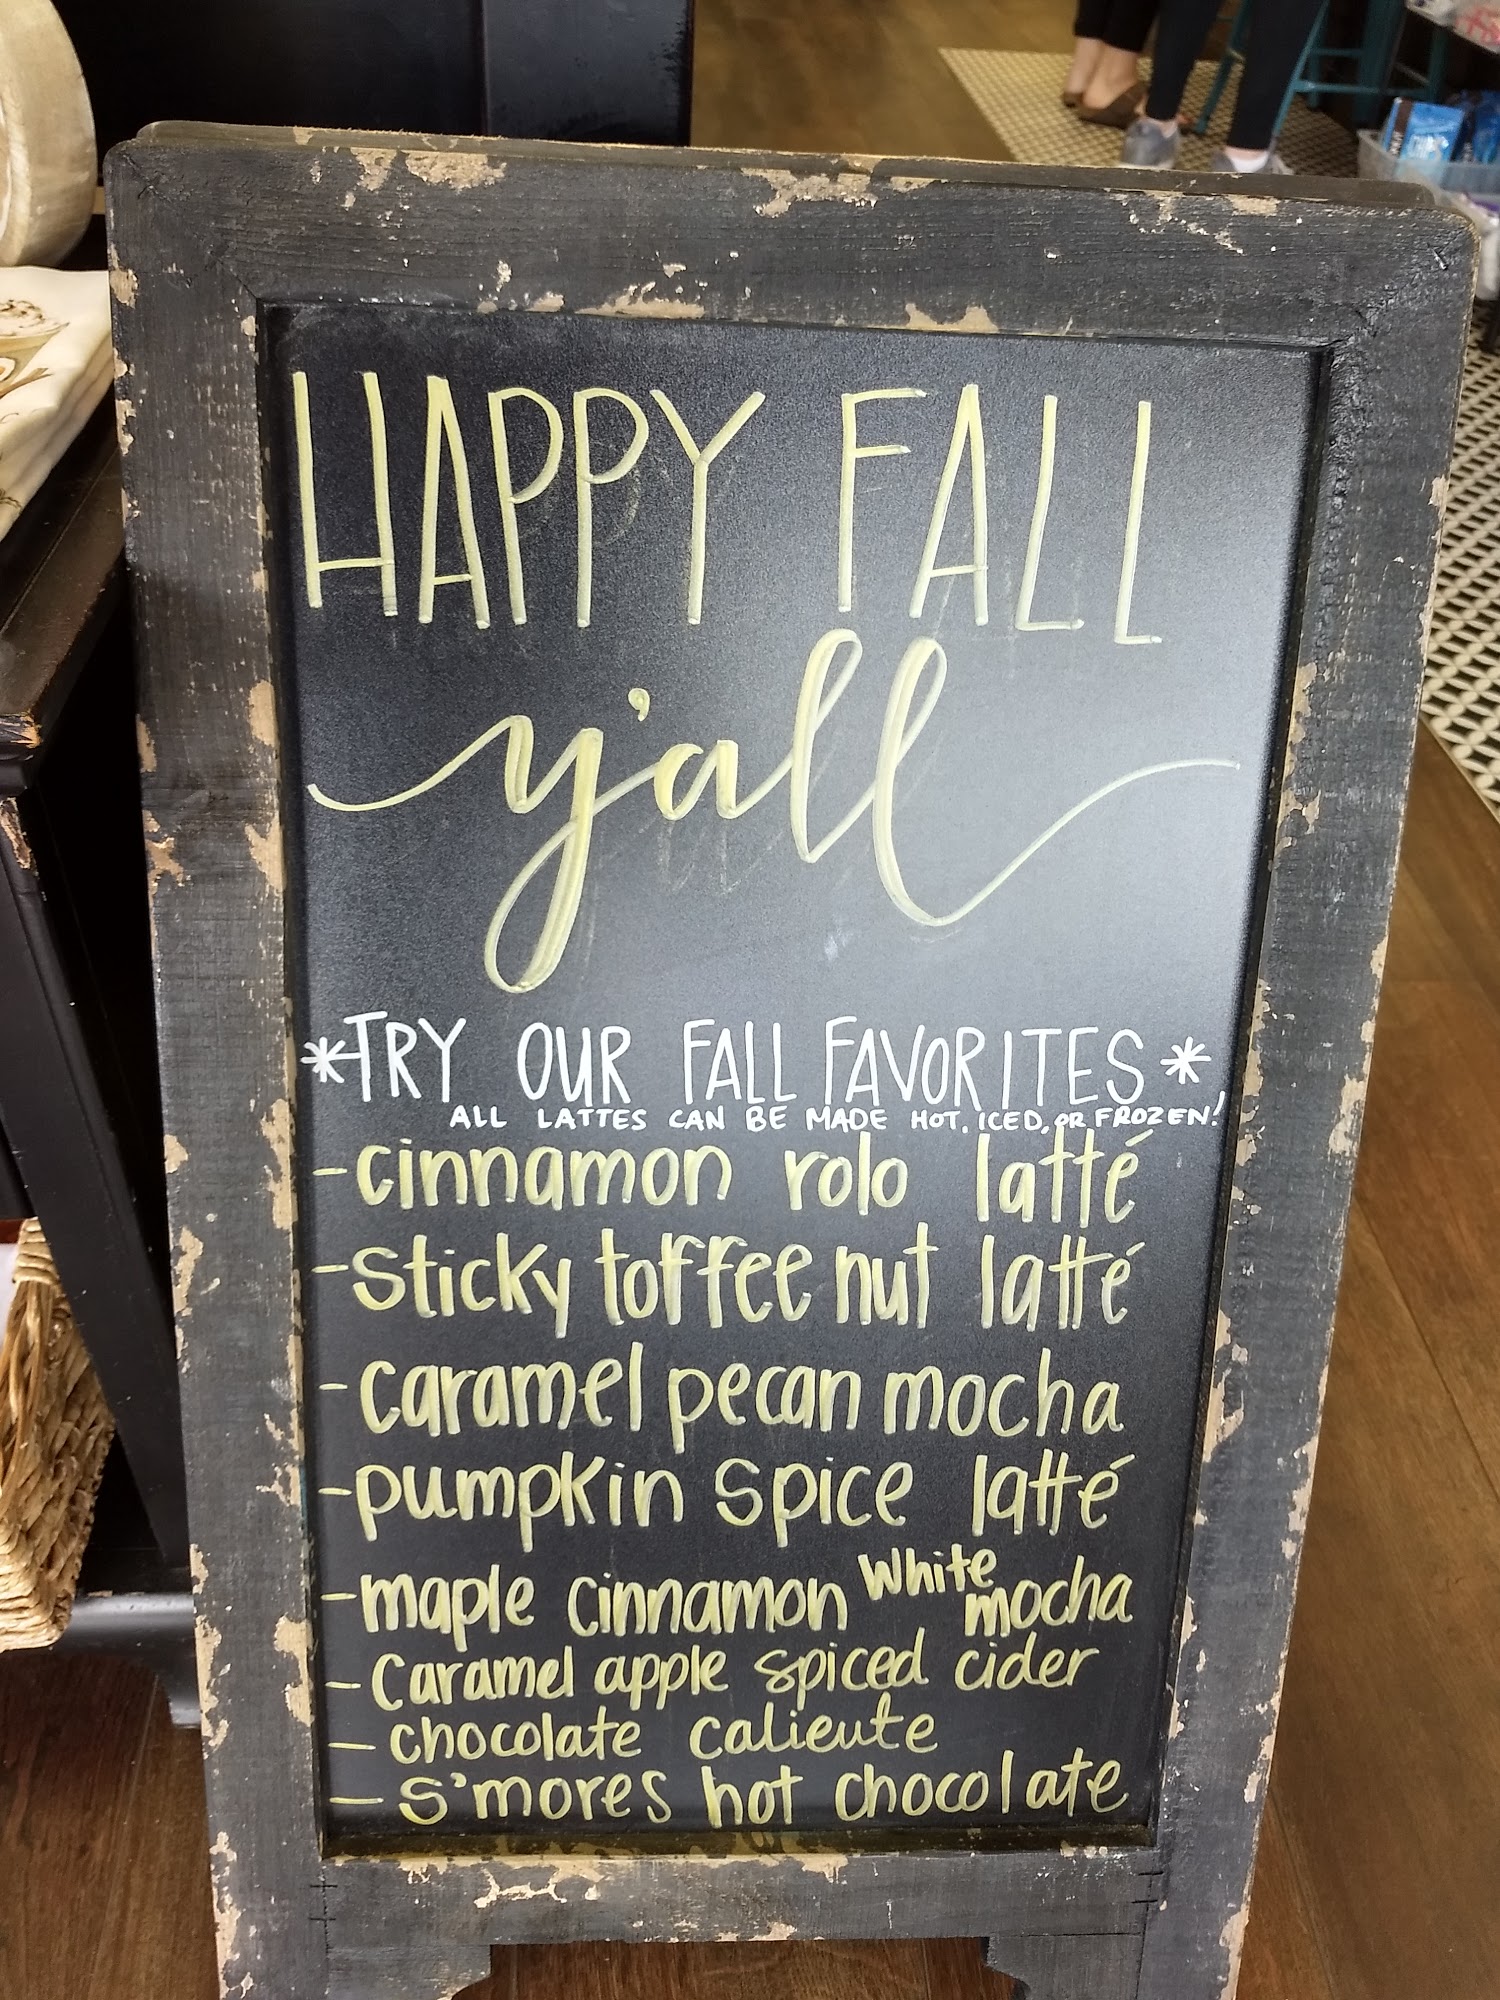 HAPPY FALL
y'all
*TRY OUR FALL FAVORITES*
ALL LATTES CAN BE MADE HOT, ICED, OR FROZEN!
-cinnamon rolo latté
-sticky toffee nut latté
-caramel pecan mocha
-pumpkin spice latté
-maple cinnamon white mocha
-caramel apple spiced cider
-chocolate caliente
-s'mores hot chocolate